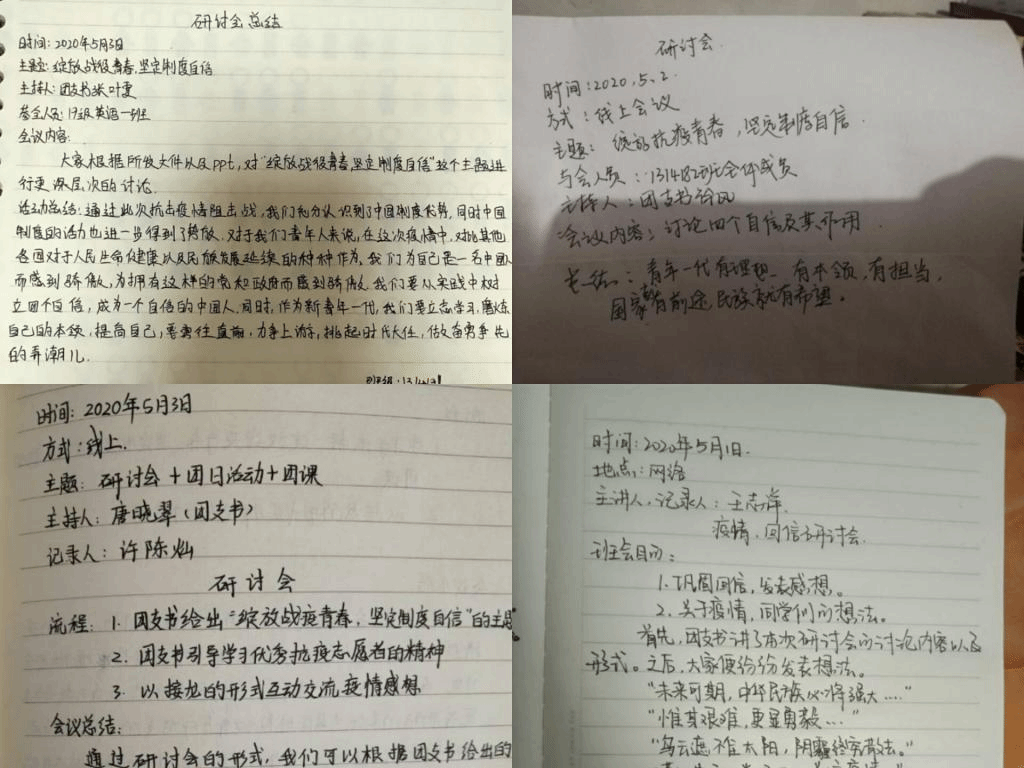 研讨会总结
时间：2020年5月3日
主题：绽放战役青春，坚定制度自信
主持人：团支书张叶雯
参会人员：19级英语一班
会议内容：
大家根据所发文件以及ppt，对“绽放战役青春坚定制度自信”这个主题进
行更深层次的讨论。
活动总结：通过此次抗击疫情阻击战，我们充分认识到了中国制度优势，同时中国
制度的活力也进一步得到了释放，对于我们青年人来说，在这次疫情中，对比其他
各国对于人民生命健康以及民族发展延续的种种作为，我们为自己是一名中国人
而感到骄傲，为拥有这样的党和政府而感到骄傲。我们要从实践中树
立四个自信，成为一个自信的中国人。同时，作为新青年一代，我们要立志学习，磨炼
自己的本领，提高自己，要勇往直前，力争上游，挑起时代大任，做奋勇争先
的弄潮儿。
班级：
研讨会
时间：2020.5.2.
方式：线上会议
主题：绽放抗疫青春，坚定制度自信
与会人员：131482班全体成员
主持人：团支书
会议内容：讨论四个自信及其作用
总结：青年一代有理想、有本领、有担当，
国家就有前途，民族就有希望。
时间：2020年5月3日
方式：线上.
主题：研讨会+团日活动+团课
主持人：唐晓翠（团支书）
记录人：许陈灿
研讨会
流程：1. 团支书给出“绽放战疫青春，坚定制度自信”的主题
2. 团支书引导学习优秀抗疫志愿者的精神
3. 以接龙的形式互动交流疫情感想
会议总结：
通过研讨会的形式，我们可以根据团支书给出的
时间：2020年5月1日.
地点：网络
主讲人、记录人：王志洋.
疫情，回信研讨会.
班会目的：
1. 巩固回信，发表感想。
2. 关于疫情，同学们的想法。
首先，团支书讲了本次研讨会的讨论内容以及
形式。之后，大家便纷纷发表想法。
“未来可期，中华民族必将强大……”
“惟其艰难，更显勇毅……”
“乌云遮不住太阳，阴霾终究散去。”